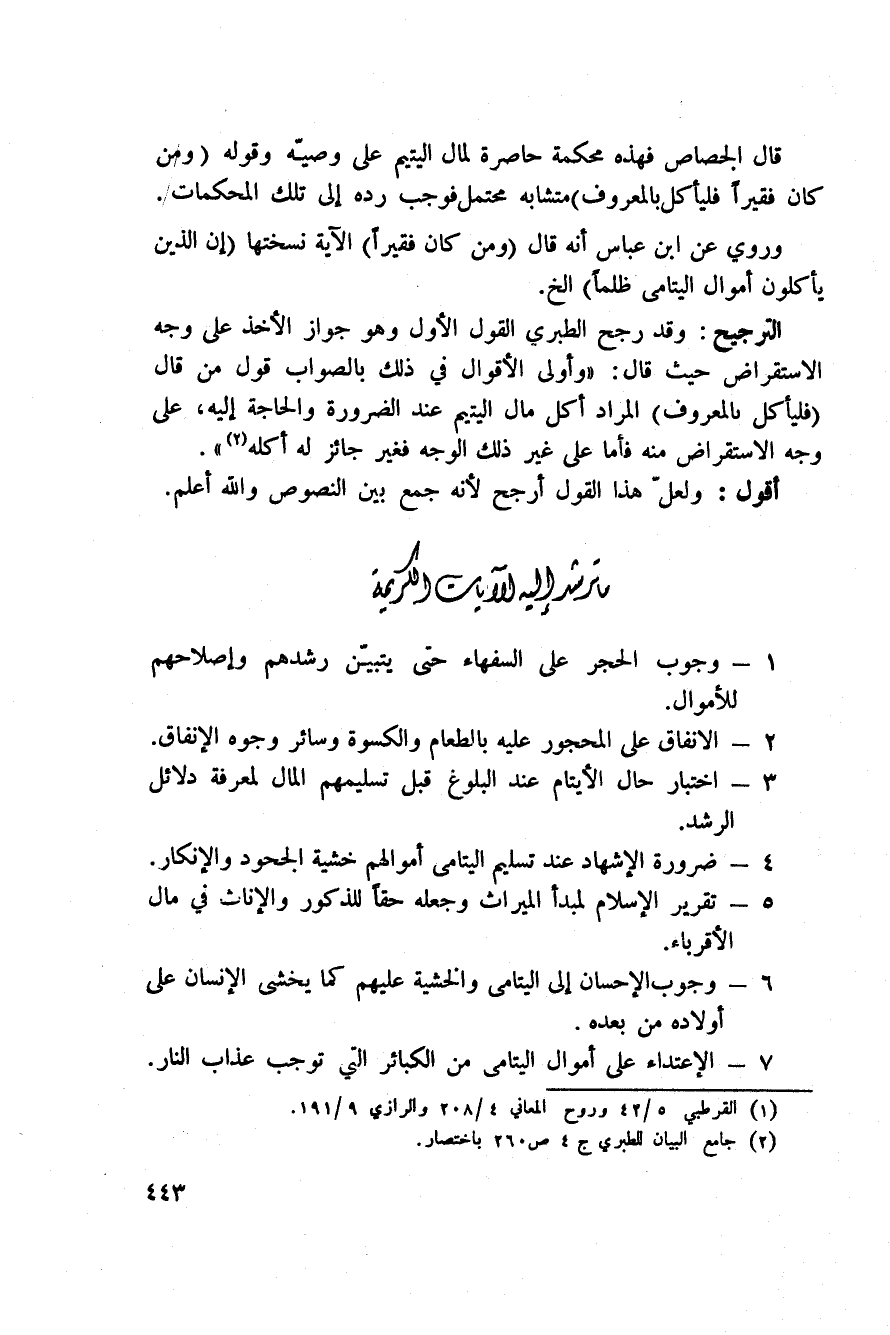 قال الجصاص فهذه محكمة حاصرة لمال اليتيم على وصيّه وقوله (ومن
كان فقيراً فليأكل بالمعروف) متشابه محتمل فوجب رده إلى تلك المحكمات.
وروي عن ابن عباس أنه قال (ومن كان فقيراً) الآية نسختها (إن الذين
يأكلون أموال اليتامى ظلماً) الخ.
الترجيح : وقد رجح الطبري القول الأول وهو جواز الأخذ على وجه
الاستقراض حيث قال : «وأولى الأقوال في ذلك بالصواب قول من قال
(فليأكل بالمعروف) المراد أكل مال اليتيم عند الضرورة والحاجة إليه، على
وجه الاستقراض منه فأما على غير ذلك الوجه فغير جائز له أكله(٢)» .
أقول : ولعلّ هذا القول أرجح لأنه جمع بين النصوص والله أعلم.
ما ترشد إليه الآيات الكريمة
١ – وجوب الحجر على السفهاء حتى يتبيّن رشدهم وإصلاحهم
للأموال.
٢ – الانفاق على المحجور عليه بالطعام والكسوة وسائر وجوه الإنفاق.
٣ – اختبار حال الأيتام عند البلوغ قبل تسليمهم المال لمعرفة دلائل
الرشد.
٤ – ضرورة الإشهاد عند تسليم اليتامى أموالهم خشية الجحود والإنكار.
٥ – تقرير الإسلام لمبدأ الميراث وجعله حقاً للذكور والإناث في مال
الأقرباء.
٦ – وجوب الإحسان إلى اليتامى والخشية عليهم كما يخشى الإنسان على
أولاده من بعده .
٧ – الإعتداء على أموال اليتامى من الكبائر التي توجب عذاب النار.
(١) القرطبي ٤٢/٥ وروح المعاني ٢٠٨/٤ والرازي ١٩١/٩.
(٢) جامع البيان للطبري ج ٤ ص ٢٦٠ باختصار.
٤٤٣